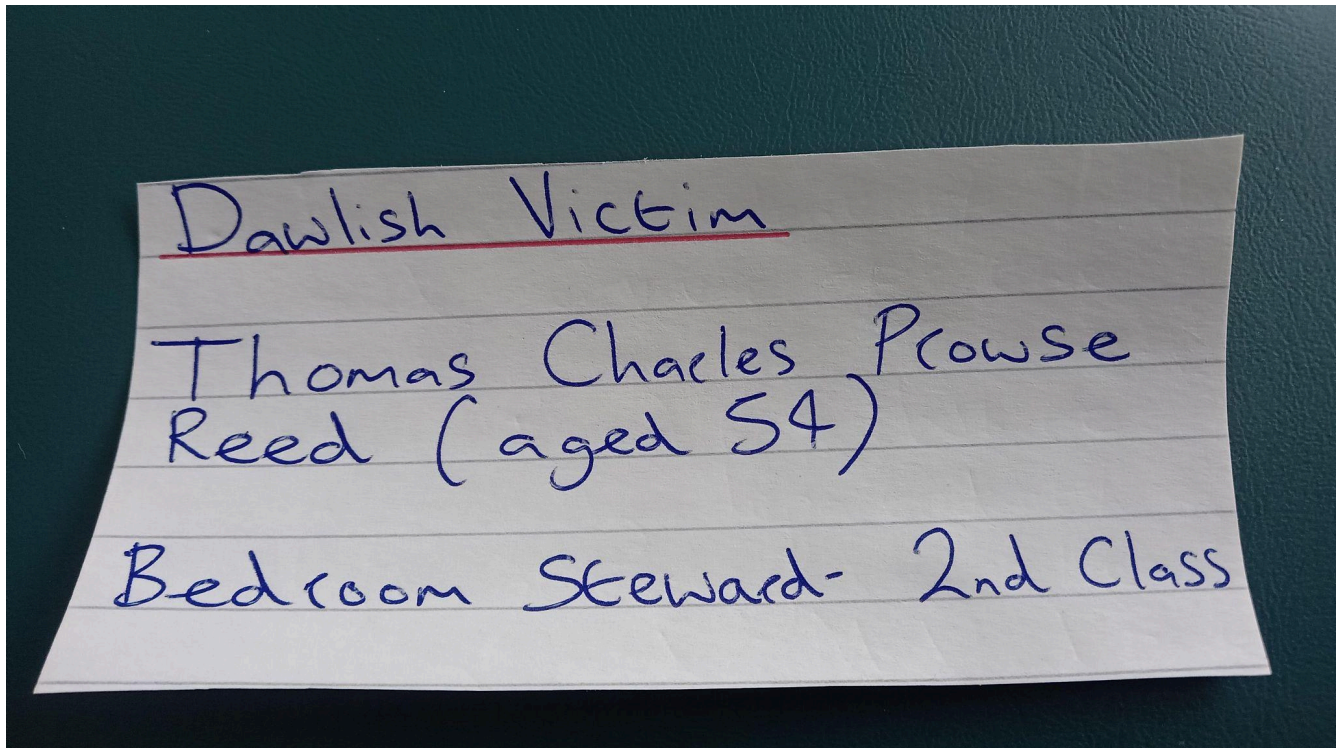 Dawlish Victim
Thomas Charles Prowse
Reed (aged 54)
Bedroom Steward- 2nd Class